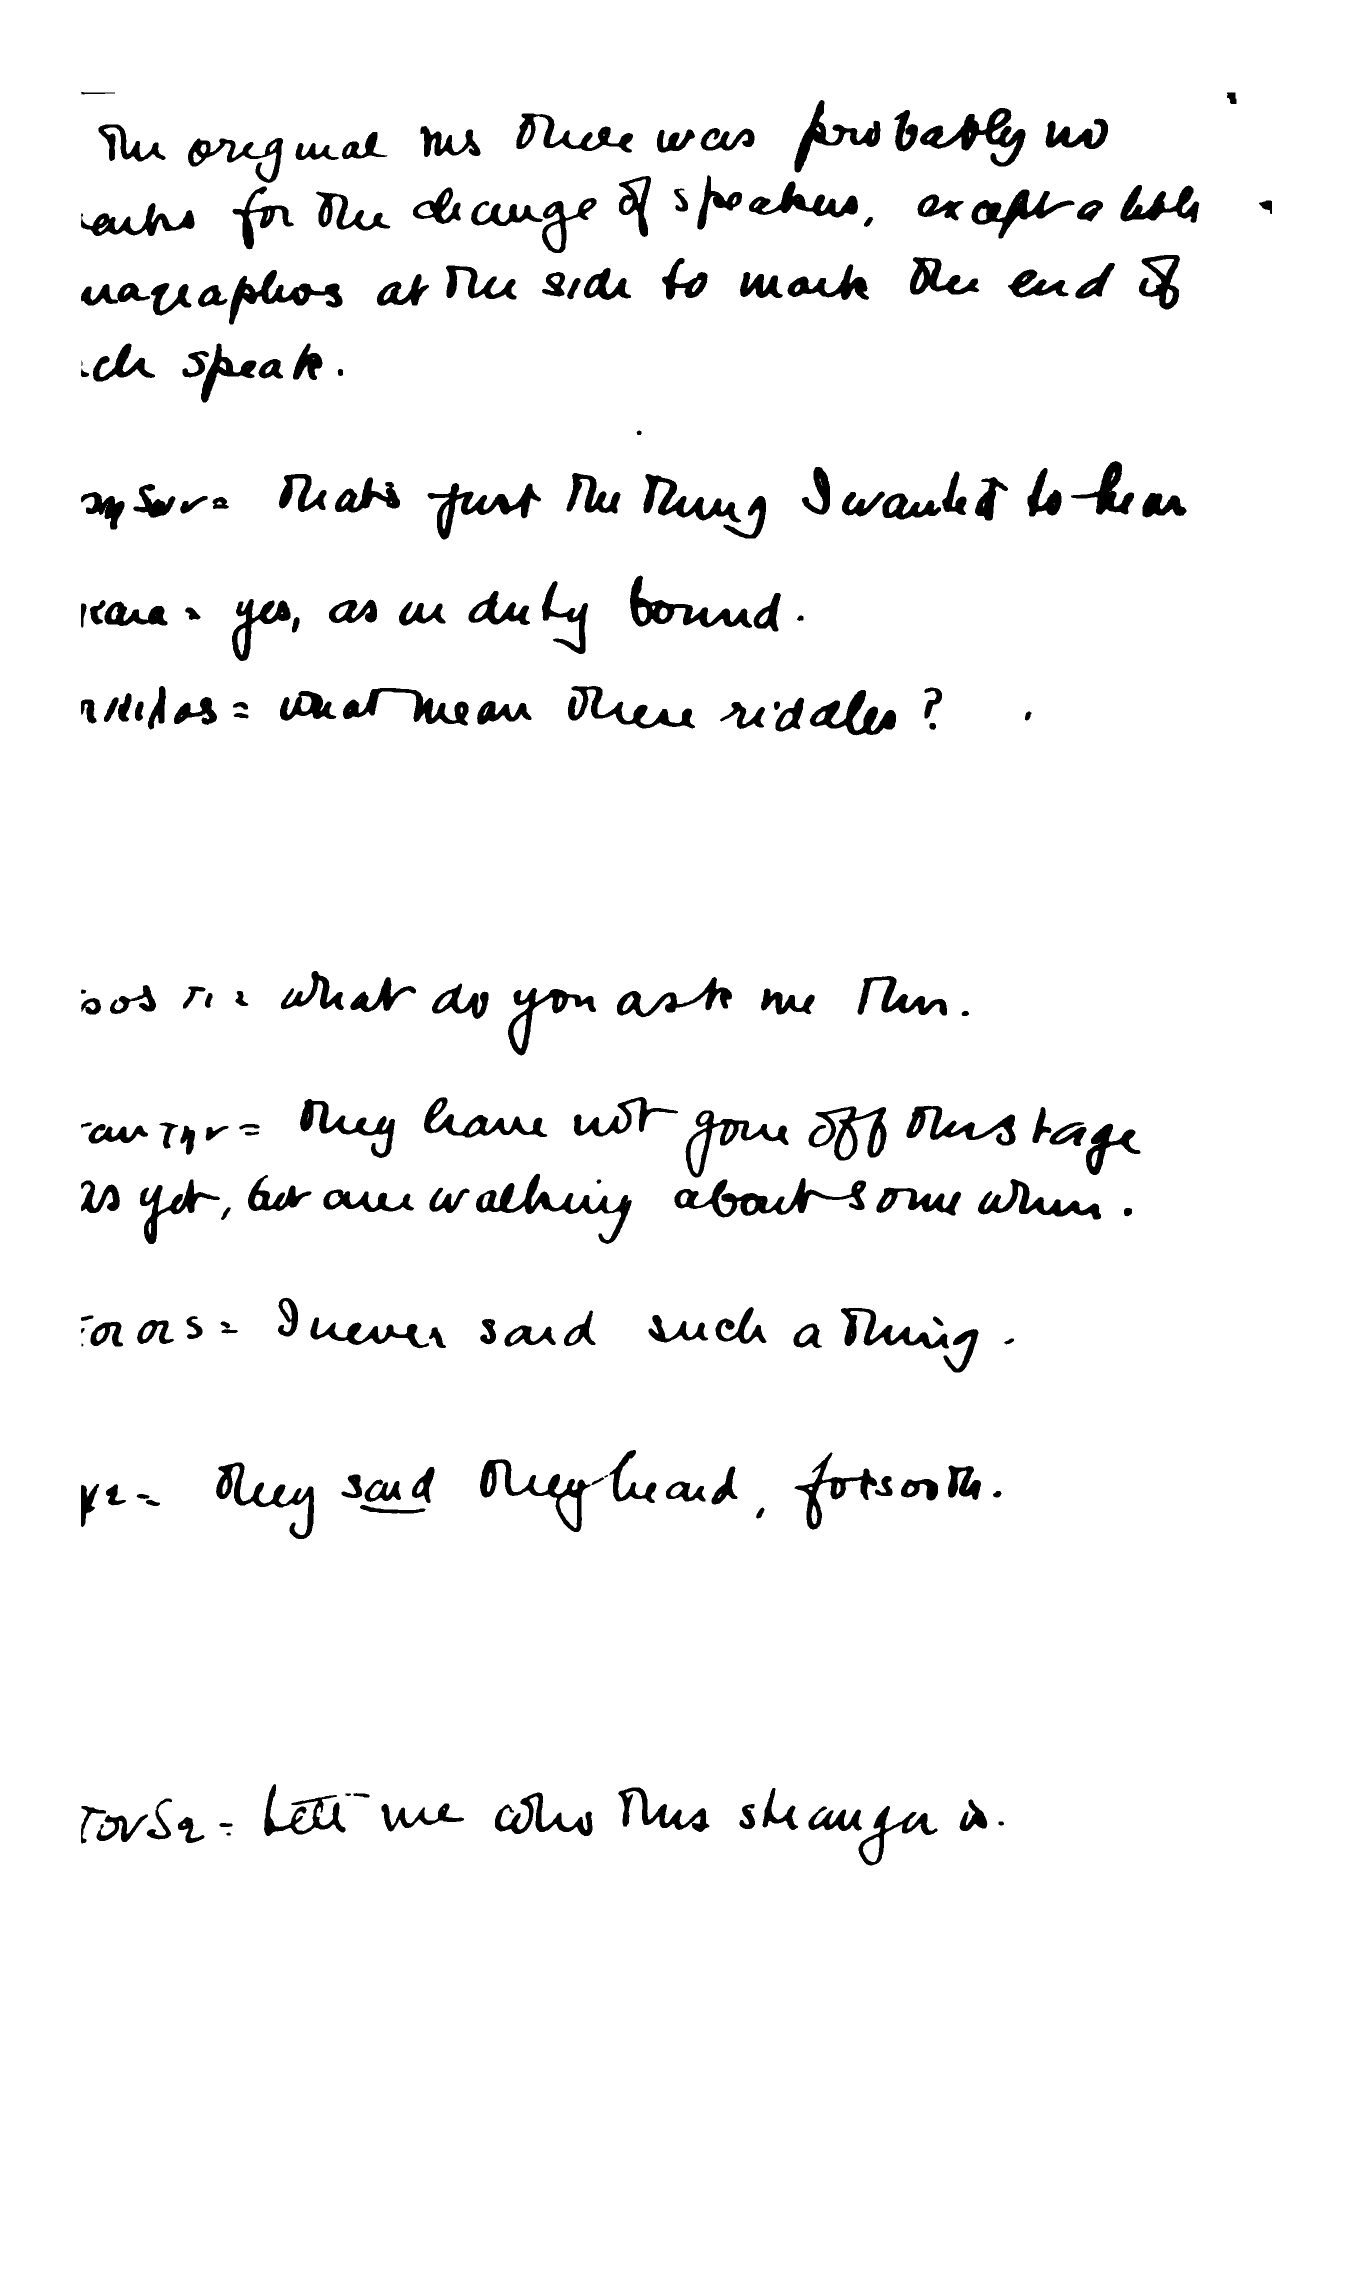 The original ms there was probably no
for the change of speakers, except a little
at the side to mark the end of
speak.
= that's just the thing I wanted to hear
= yes, as in duty bound.
= what mean these riddles?
= what do you ask me then.
= they have not gone off the stage
as yet, but are walking about somewhere.
= I never said such a thing.
= they said they heard, forsooth.
= tell me who this stranger is.